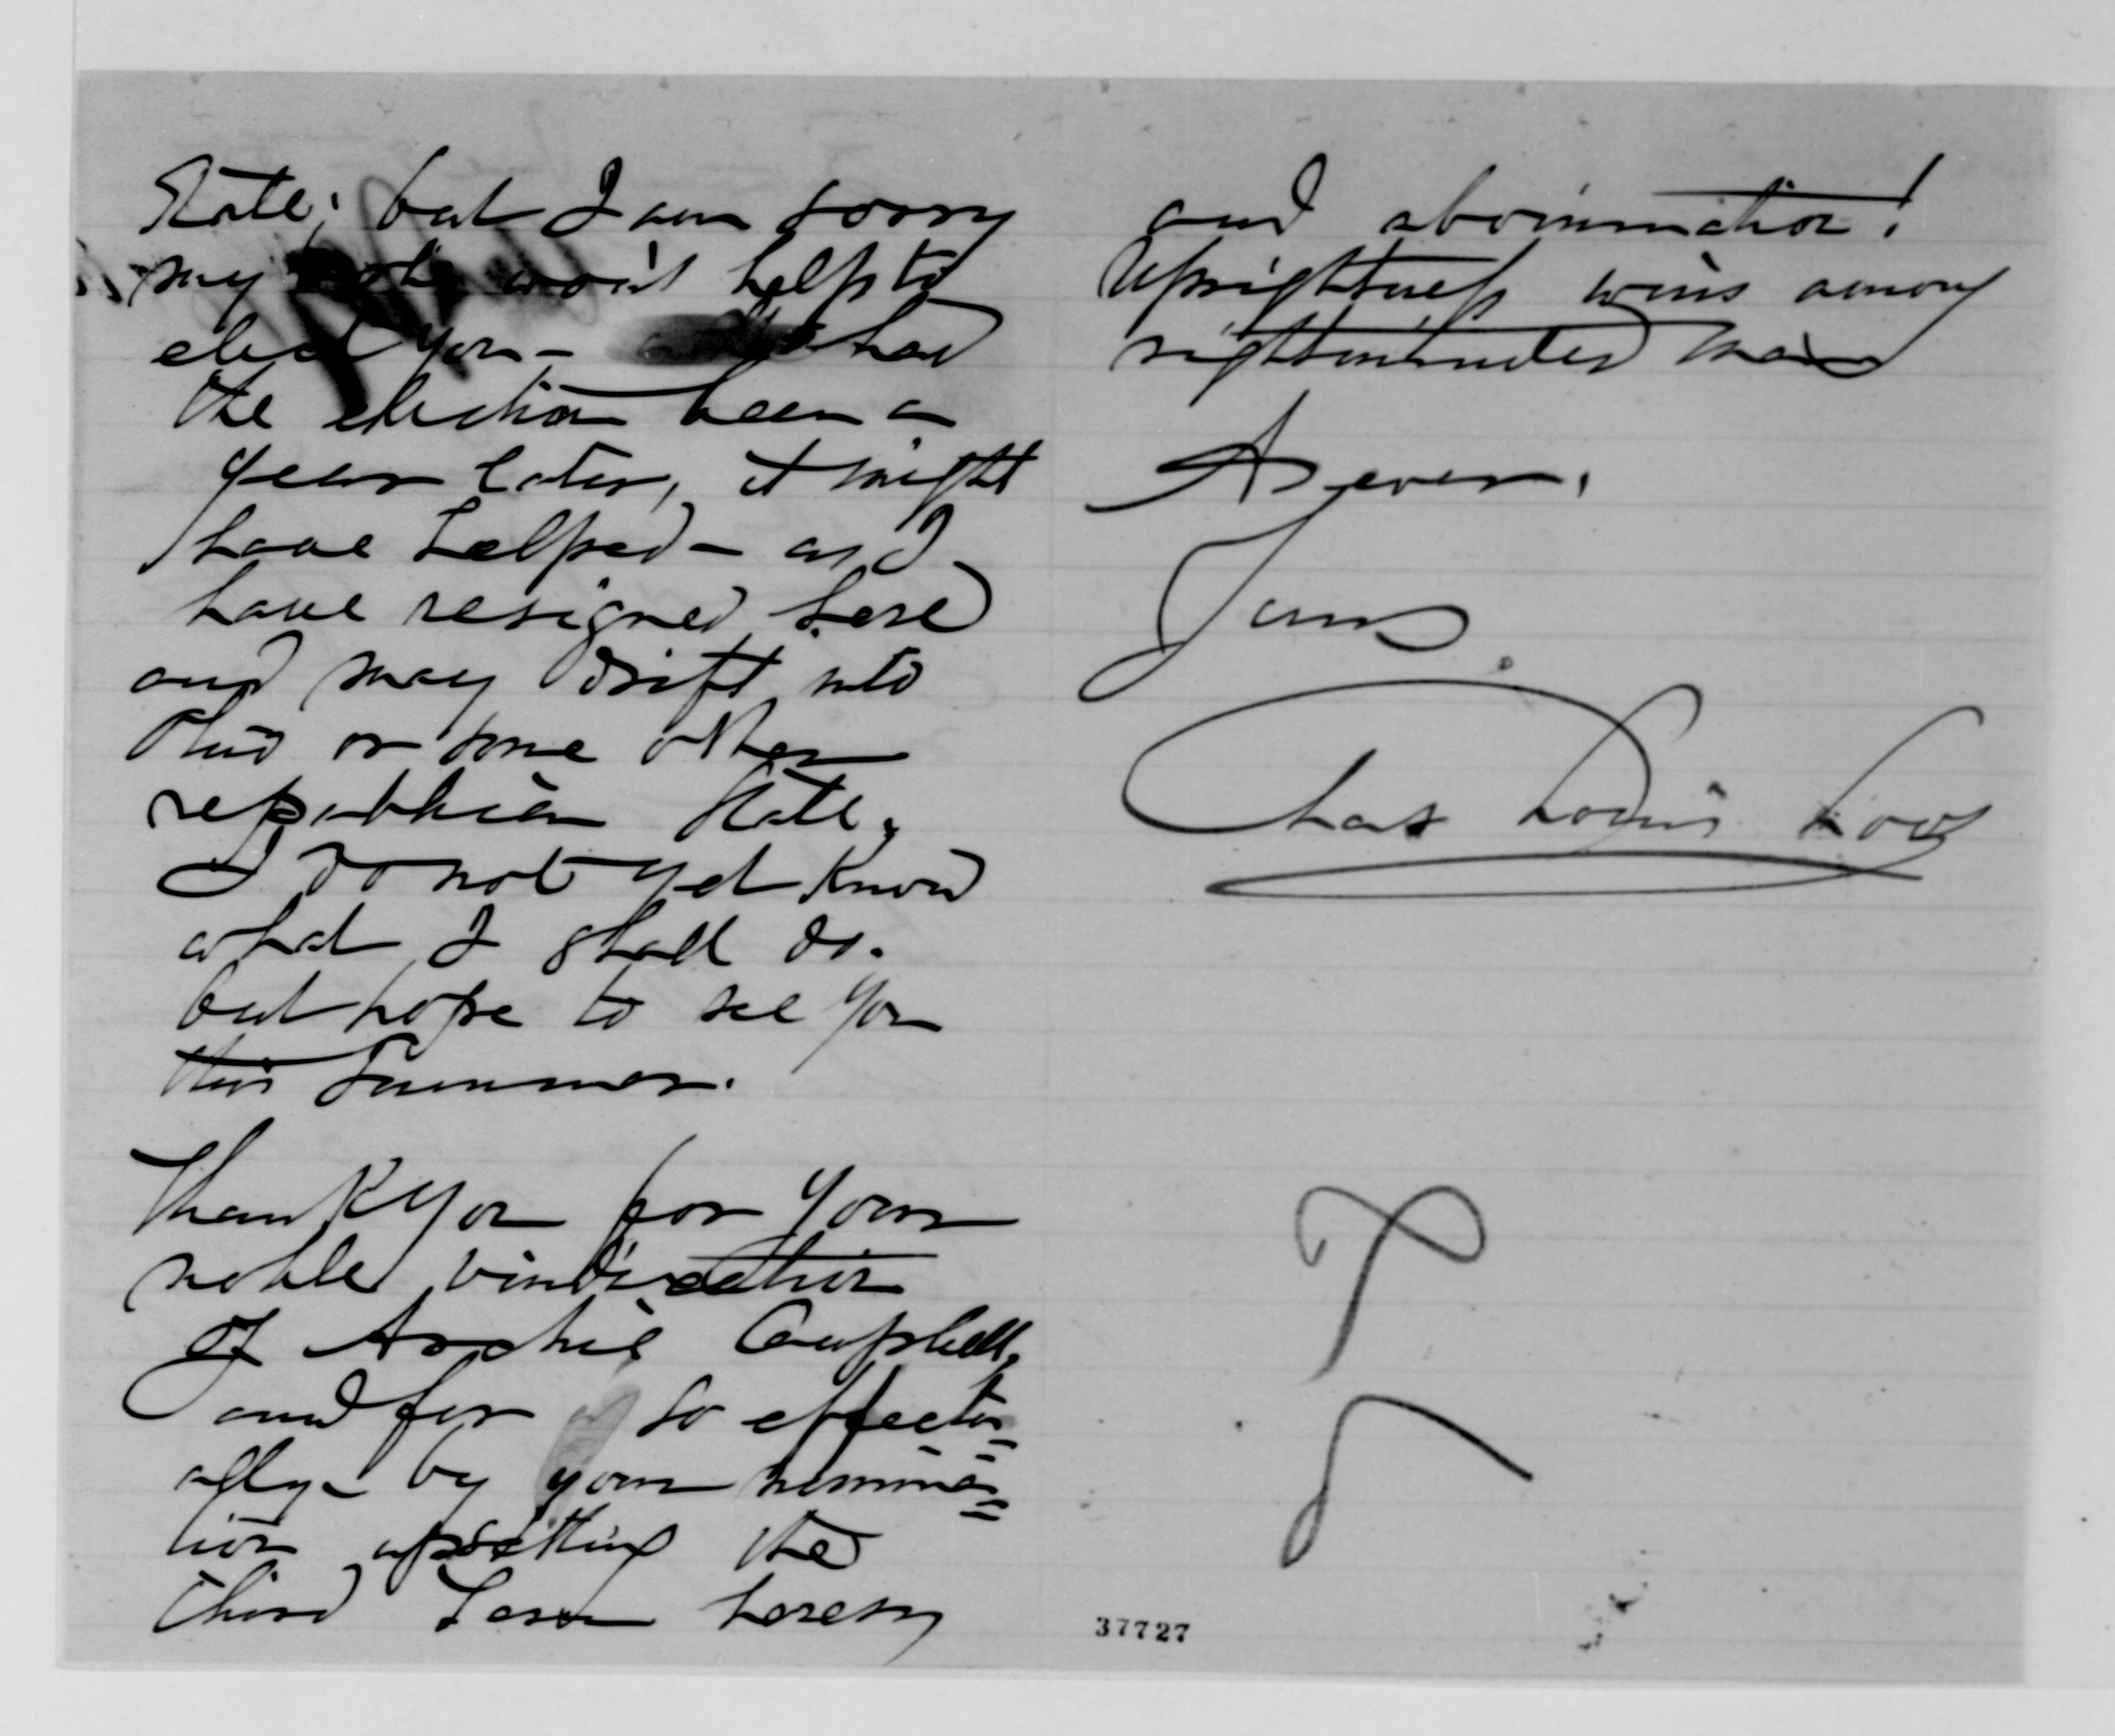 State; but I am sorry
my vote won't help to
elect you - had
the election been a
year later, it might
have helped - as I
have resigned here
and may drift into
this or some other
republican State.
I do not yet know
what I shall do.
but hope to see you
this Summer.
Thank you for your
noble vindication
of Archie Campbell,
and for so effectu=
ally - by your nomina=
tion upsetting the
third Term heresy
and abomination!
Uprightness wins among
rightminded men
As ever.
Yours.
Chas Louis Loos
37727